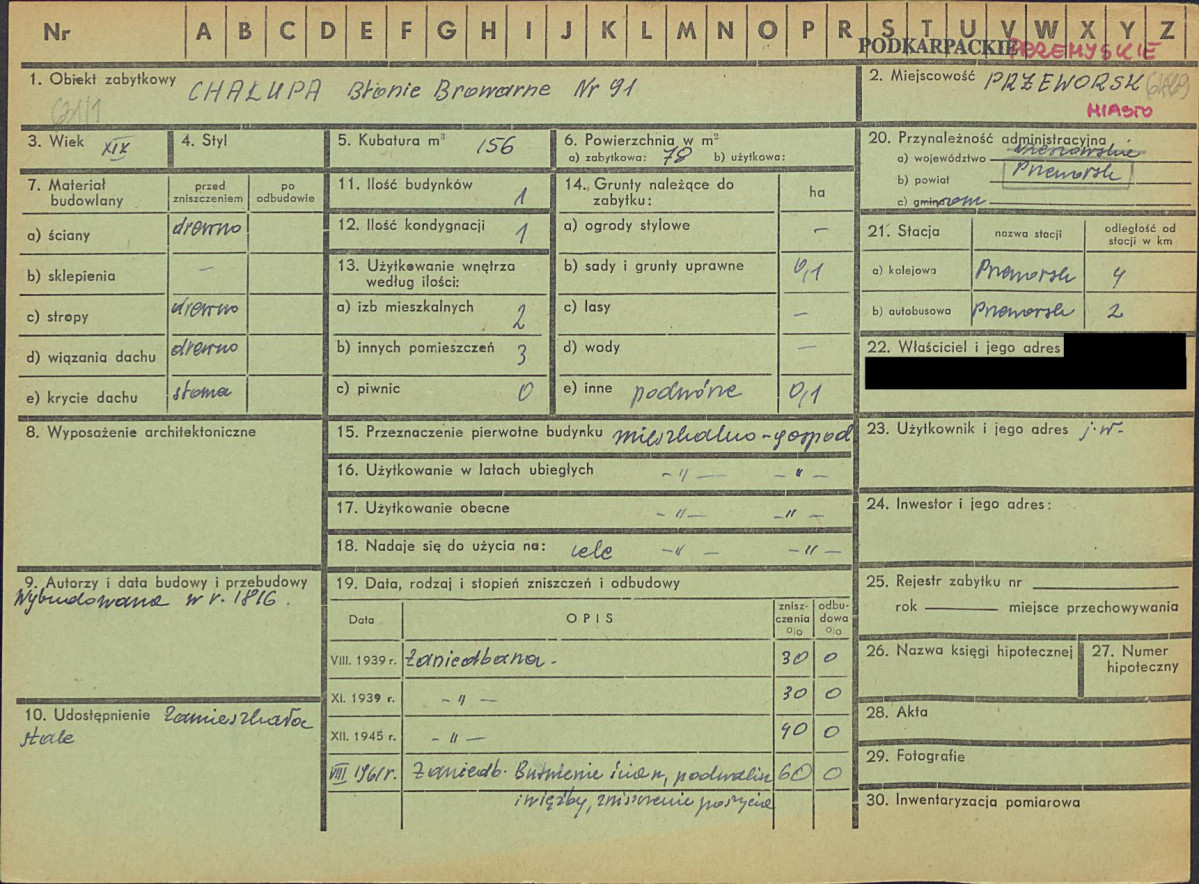 Nr A B C D E F G H I J K L M N O P R S T U V W X Y Z
PODKARPACKIE PRZEMYSKIE
1. Obiekt zabytkowy CHAŁUPA Błonie Browarne Nr 91
61/1
2. Miejscowość PRZEWORSK
MIASTO
3. Wiek XIX
4. Styl
5. Kubatura m³ 156
6. Powierzchnia w m²
a) zabytkowa: 78 b) użytkowa:
7. Materiał budowlany
przed zniszczeniem
po odbudowie
a) ściany drewno
b) sklepienia –
c) stropy drewno
d) wiązania dachu drewno
e) krycie dachu słoma
8. Wyposażenie architektoniczne
9. Autorzy i data budowy i przebudowy
Wybudowana w r. 1816.
10. Udostępnienie Zamieszkała
stale
11. Ilość budynków 1
12. Ilość kondygnacji 1
13. Użytkowanie wnętrza
według ilości:
a) izb mieszkalnych 2
b) innych pomieszczeń 3
c) piwnic 0
14. Grunty należące do
zabytku:
ha
a) ogrody stylowe –
b) sady i grunty uprawne 0,1
c) lasy –
d) wody –
e) inne podwórze 0,1
15. Przeznaczenie pierwotne budynku mieszkalno-gospod
16. Użytkowanie w latach ubiegłych – " — – " –
17. Użytkowanie obecne – " — – " –
18. Nadaje się do użycia na: cele – " – – " –
19. Data, rodzaj i stopień zniszczeń i odbudowy
Data OPIS znisz-
czenia
o|o odbu-
dowa
o|o
VIII. 1939 r. Zaniedbana - 30 0
XI. 1939 r. – " — 30 0
XII. 1945 r. – " — 40 0
VIII 1961 r. Zaniedb. Butwienie ścian, podwalin 60 0
i więźby, zniszczenie poszycia
20. Przynależność administracyjna
a) województwo rzeszowskie
b) powiat Przeworsk
c) gmina
21. Stacja
nazwa stacji
odległość od
stacji w km
a) kolejowa Przeworsk 4
b) autobusowa Przeworsk 2
22. Właściciel i jego adres
23. Użytkownik i jego adres j.w.-
24. Inwestor i jego adres:
25. Rejestr zabytku nr
rok miejsce przechowywania
26. Nazwa księgi hipotecznej
27. Numer
hipoteczny
28. Akta
29. Fotografie
30. Inwentaryzacja pomiarowa